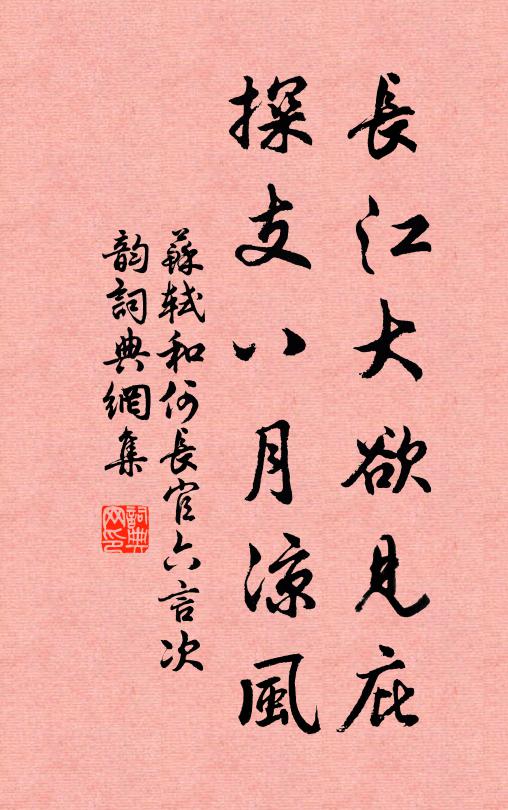 長江大欲見庇
探支八月涼風
蘇軾和何長官六言次
韵詞典網集
詞典
网印